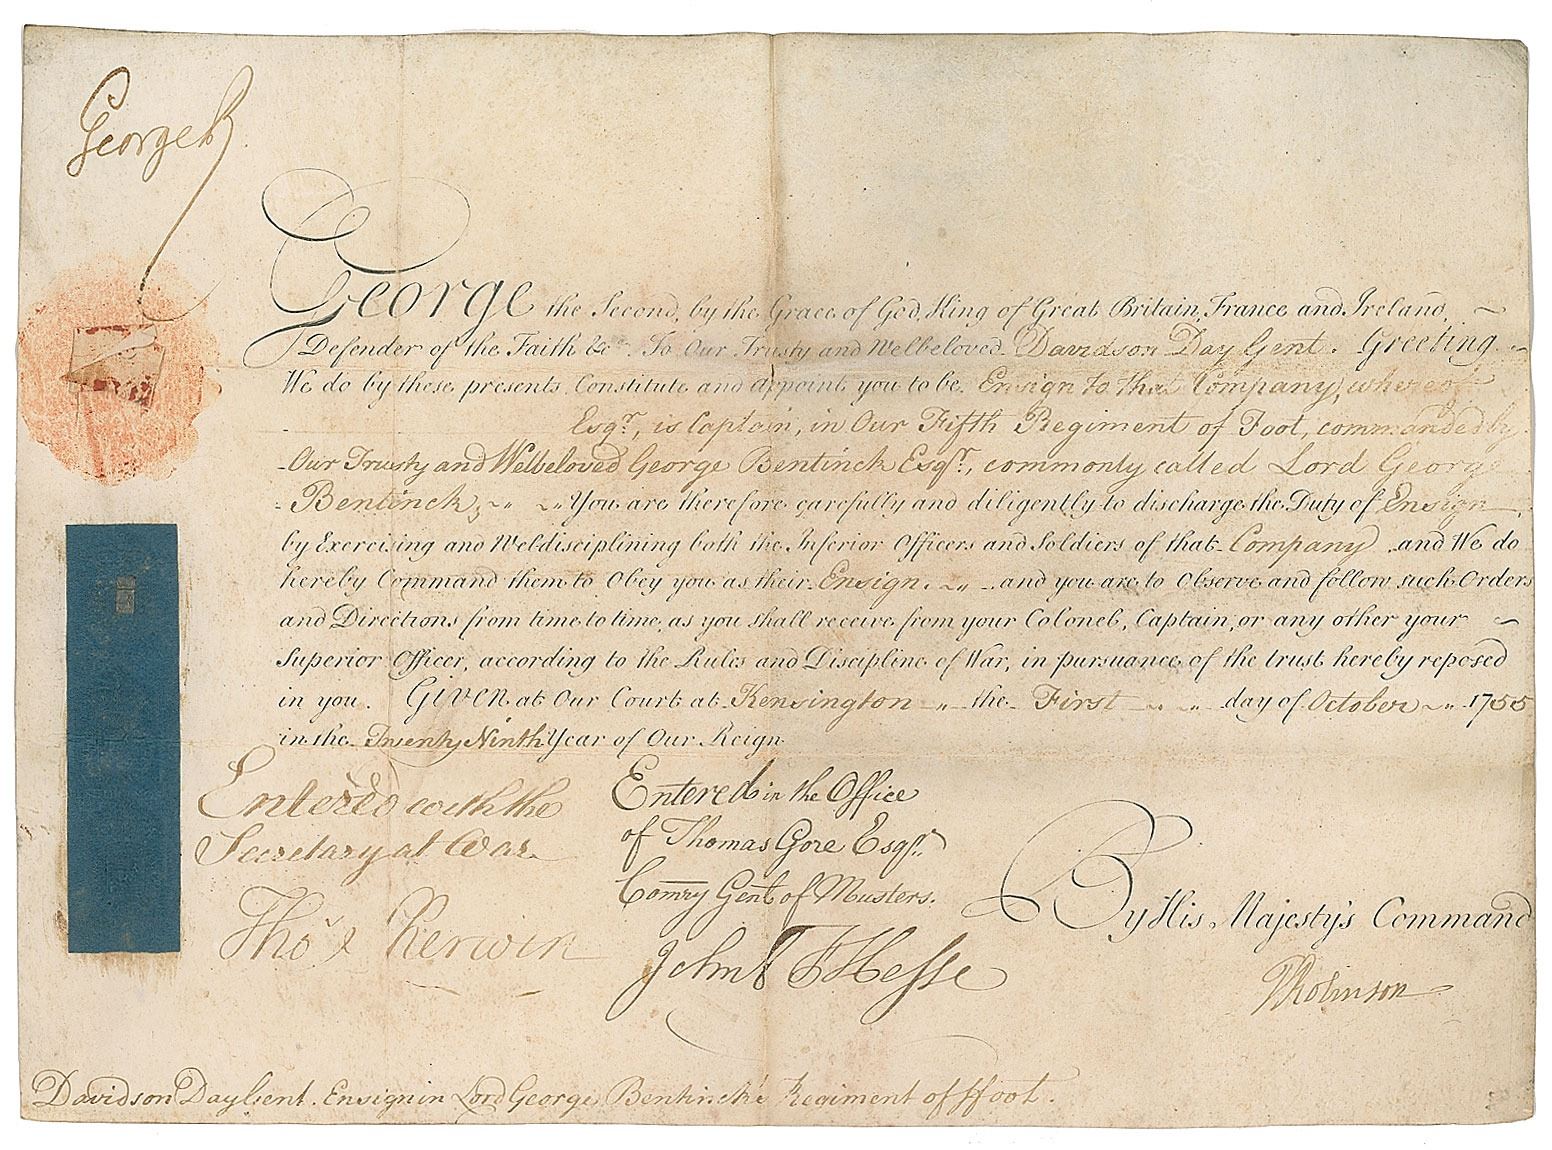 George R
George the Second, by the Grace of God, King of Great Britain, France and Ireland,
Defender of the Faith &c. To Our Trusty and Welbeloved Davidson Day Gent. Greeting
We do by these presents Constitute and Appoint you to be Ensign to that Company, whereof
Esqr., is Captain, in Our Fifth Regiment of Foot, commanded by
Our Trusty and Welbeloved George Bentinck Esqr., commonly called Lord George
Bentinck; You are therefore carefully and diligently to discharge the Duty of Ensign
by Exercising and Weldisciplining both the Inferior Officers and Soldiers of that Company and We do
hereby Command them to Obey you as their Ensign. and you are to Observe and follow such Orders
and Directions from time to time, as you shall receive from your Colonel, Captain, or any other your
Superior Officer, according to the Rules and Discipline of War, in pursuance of the trust hereby reposed
in you. Given at Our Court at Kensington the First day of October 1755
in the Twenty Ninth Year of Our Reign
Entered with the
Secretary at War
Thos. Kerwin
Entered in the Office
of Thomas Gore Esqr.
Comry Genl of Musters.
John F Hesse
By His Majesty's Command
T Robinson
Davidson Day Gent. Ensign in Lord George Bentinck's Regiment of ffoot.